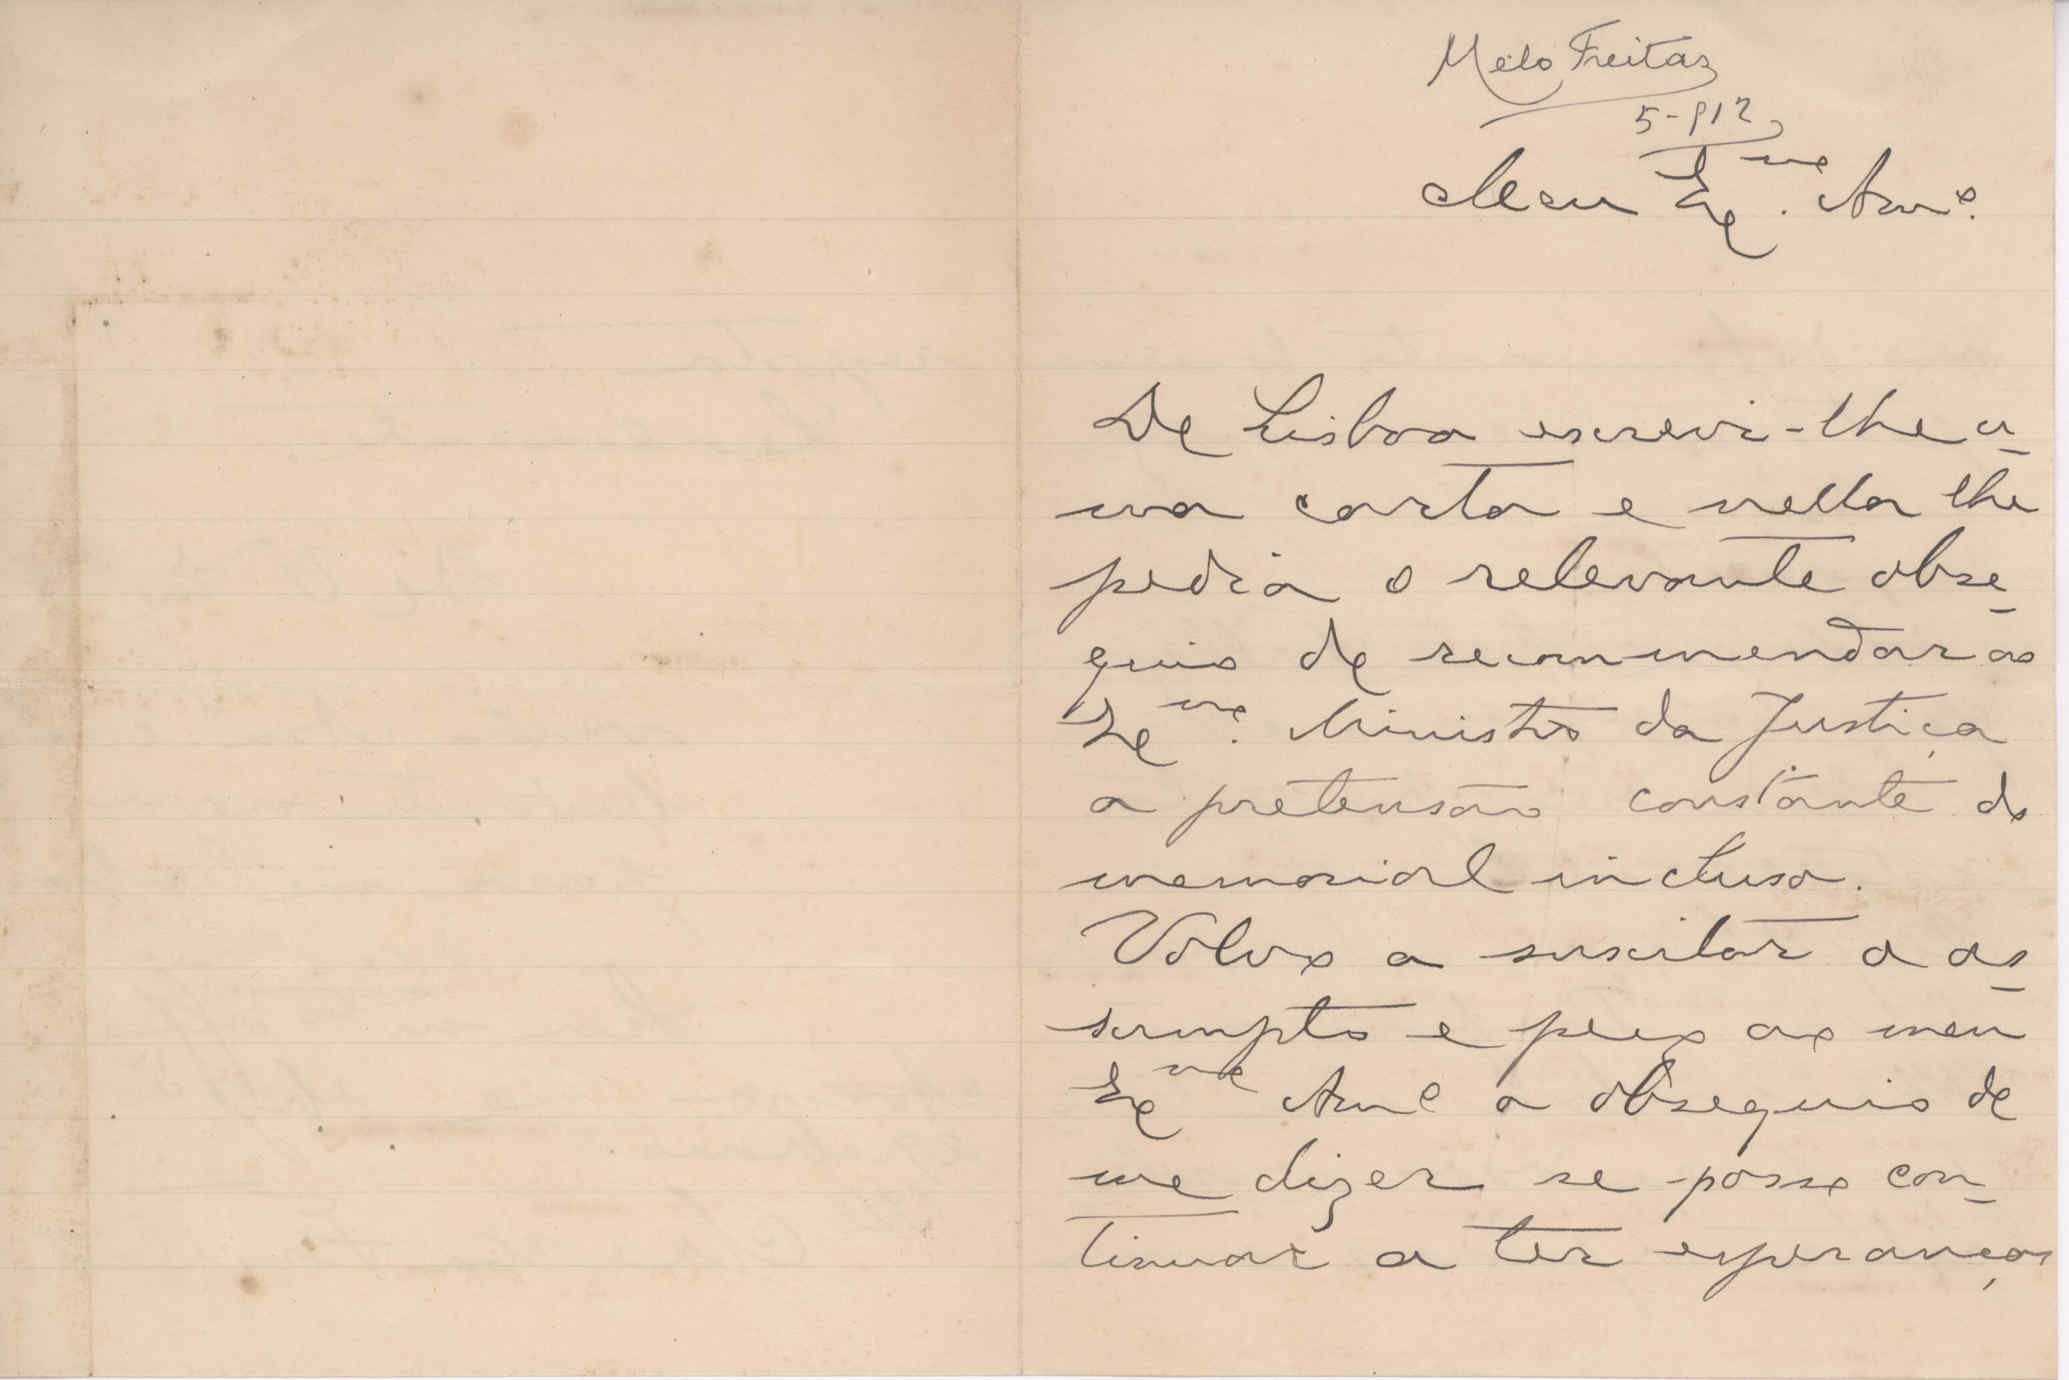 Melo Freitas
5-912
Meu Ex.me Am.o
De Lisboa escrevi-lhe u-
ma carta e nella lhe
pedia o relevante obse-
quio de recommendar ao
Ex.me Ministro da Justiça
a pretensão constante do
memorial incluso.
Volvo a suscitar o as-
sumpto e peço ao meu
Ex.me Am.o o obsequio de
me dizer se posso con-
tinuar a ter esperanças